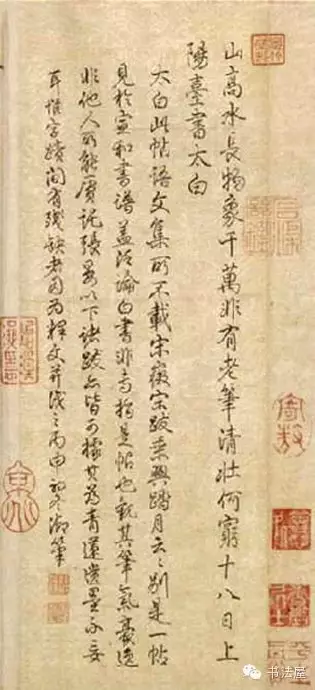 山高水長物象千萬非有老筆清壯何窮十八日上
陽臺書太白
太白此帖語文集所不載宋徽宗跋乘興踏月云〻別是一帖
見於宣和書譜蓋泛論白書非專指是帖也觀其筆氣豪逸
非他人所能贋託張晏以下諸跋亦皆可據其為青蓮遺墨不妄
耳惟字蹟間有殘缺者因為釋文并識之丙申初冬御筆
书法屋